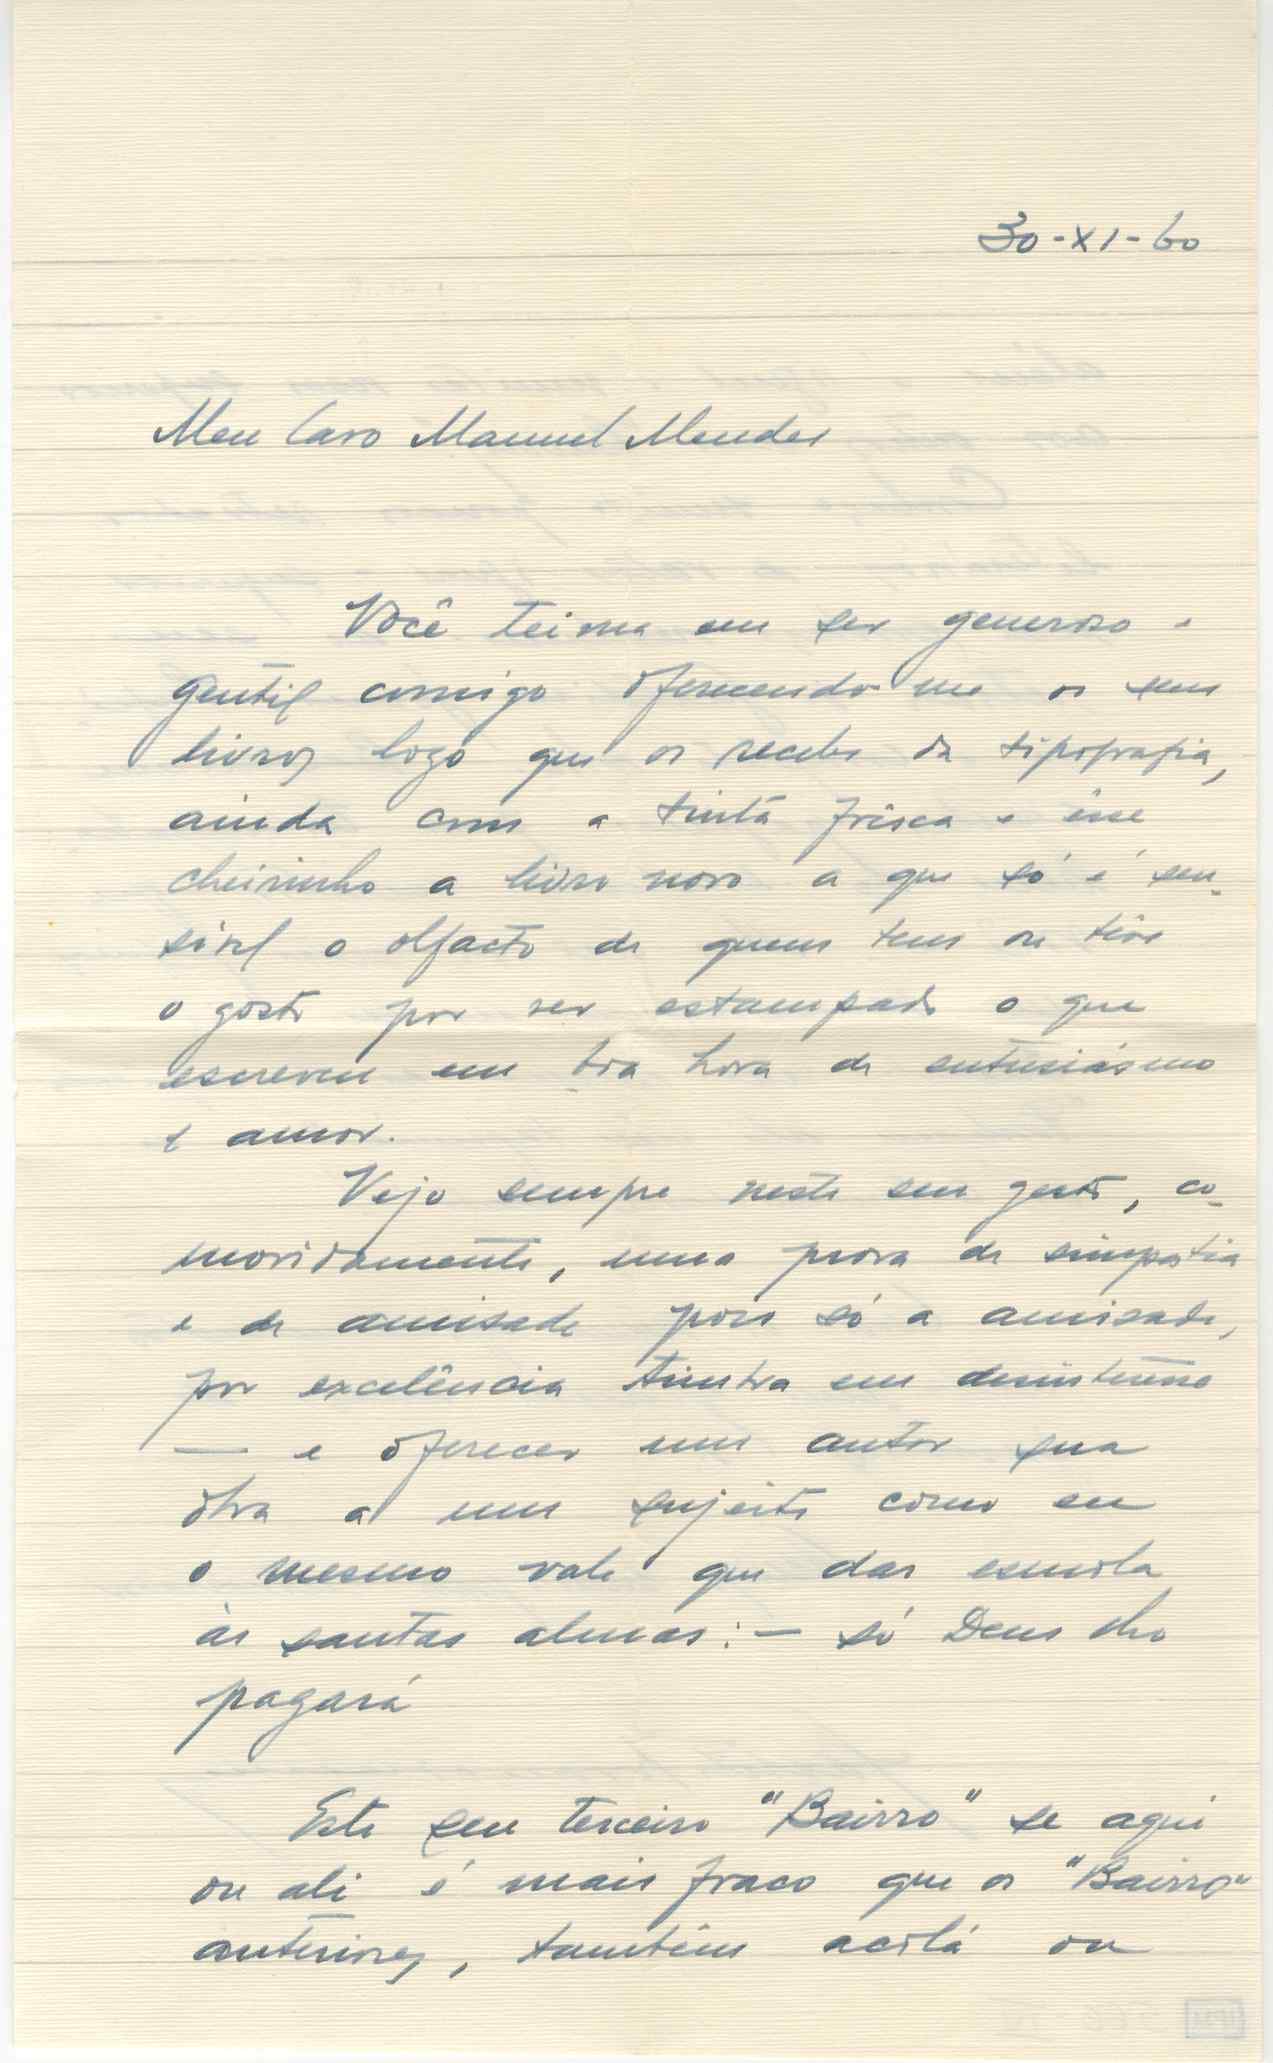 30-XI-60
Meu Caro Manuel Mendes
Você teima em ser generoso e
gentil comigo oferecendo-me os seus
livros logo que os recebe da tipografia,
ainda com a tinta frêsca e êsse
cheirinho a livro novo a que só é sen-
sivel o olfacto de quem tem ou teve
o gosto por ver estampado o que
escreveu em boa hora de entusiásmo
e amor.
Vejo sempre neste seu gesto, co-
movidamente, uma prova de simpatia
e de amisade pois só a amisade,
por excelência timbra em desinterêsse
— e oferecer um autor sua
obra a um sujeito como eu
o mesmo vale que dar esmola
às santas almas: — só Deus lho
pagará
Este seu terceiro "Bairro" se aqui
ou ali é mais fraco que os "Bairro"
anteriores, também acolá ou